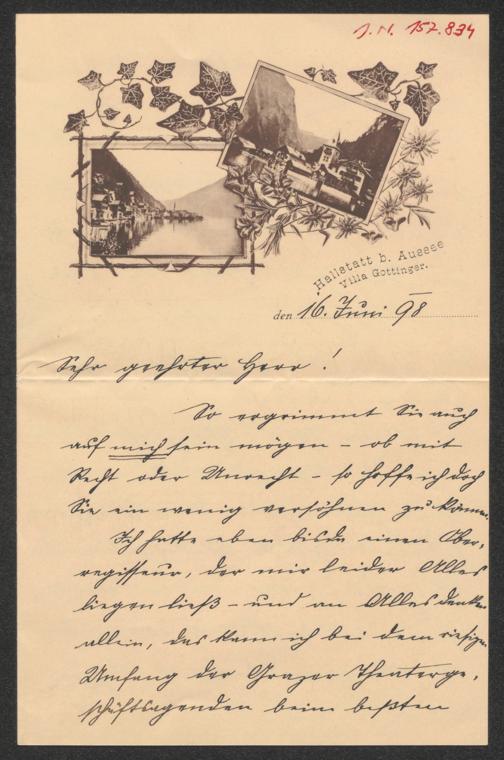 J.N. 157.834
Hallstatt b. Aussee
Villa Gottinger.
den 16. Juni 98
Sehr geehrter Herr!
So ergrimmt Sie auch
auf mich sein mögen – ob mit
Recht oder Unrecht – so hoffe ich doch
Sie ein wenig versöhnen zu können.
Ich hatte eben bisda einen Ober,
regisseur, der mir leider Alles
liegen ließ – und an Alles denken
allein, das kann ich bei dem riesigen
Umfang der Grazer Theaterge,
schäftsagenden beim besten